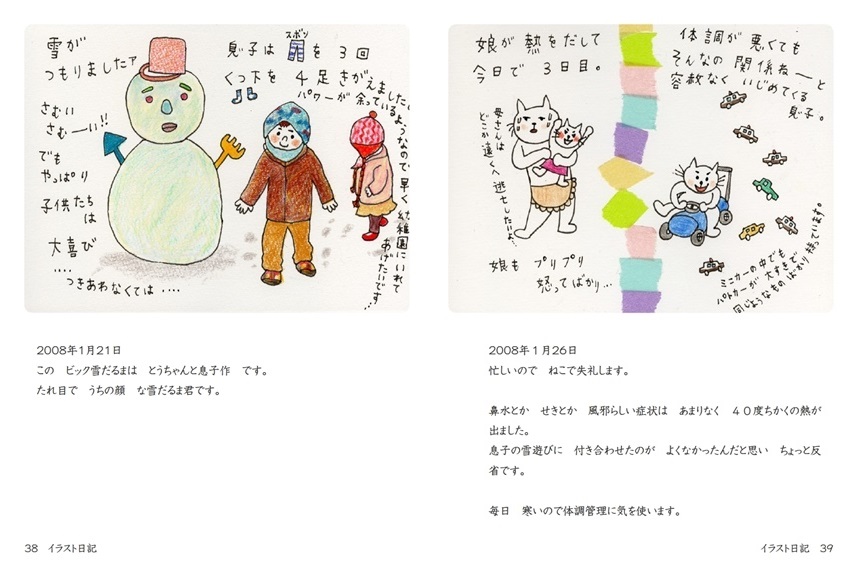 雪が
つもりましたァ
さむい
さむーい!!
でも
やっぱり
子供たち
は
大喜び
‥‥
つきあわなくては‥‥
息子は
ズボン
を3回
くつ下を
4足きがえました。
パワーが余っているよ
うなので早く幼稚園にいれて
あげたいです…
娘が熱をだして
今日で3日目。
母さんは
どこか遠くへ逃亡したいよ、
娘もプリプリ
怒ってばかり…
体調が悪くても
そんなの関係ねーと
容赦なくいじめてくる
息子。
ミニカーの中でも
パトカーが大すきで
同じようなものばかり持っています。
2008年1月21日
この　ビック雪だるまは　とうちゃんと息子作　です。
たれ目で　うちの顔　な雪だるま君です。
38　イラスト日記
2008年1月26日
忙しいので　ねこで失礼します。
鼻水とか　せきとか　風邪らしい症状は　あまりなく　４０度ちかくの熱が
出ました。
息子の雪遊びに　付き合わせたのが　よくなかったんだと思い　ちょっと反
省です。
毎日　寒いので体調管理に気を使います。
イラスト日記　39